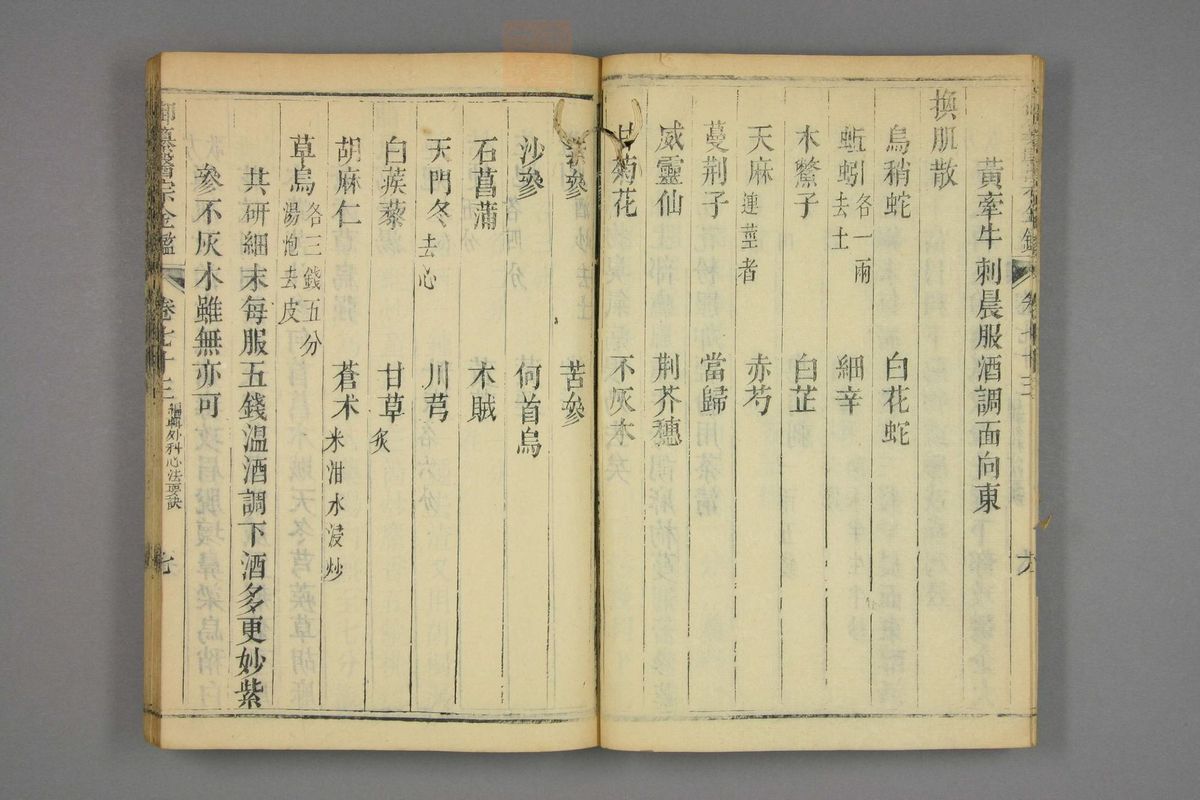 黃牽牛刺晨服酒調面向東
換肌散
烏稍蛇　白花蛇
蚯蚓各一兩去土　細辛
木鱉子　白芷
天麻連莖者　赤芍
蔓荆子　當歸
威靈仙　荆芥穗
甘菊花　不灰木
紫參　苦參
沙參　何首烏
石菖蒲　木賊
天門冬去心　川芎
白蒺藜　甘草炙
胡麻仁　蒼术米泔水浸炒
草烏各三錢五分湯炮去皮
共研細末每服五錢温酒調下酒多更妙紫
參不灰木雖無亦可
御纂醫宗金鑑　卷七十三　編輯外科心法要訣　七
卷七十三　六